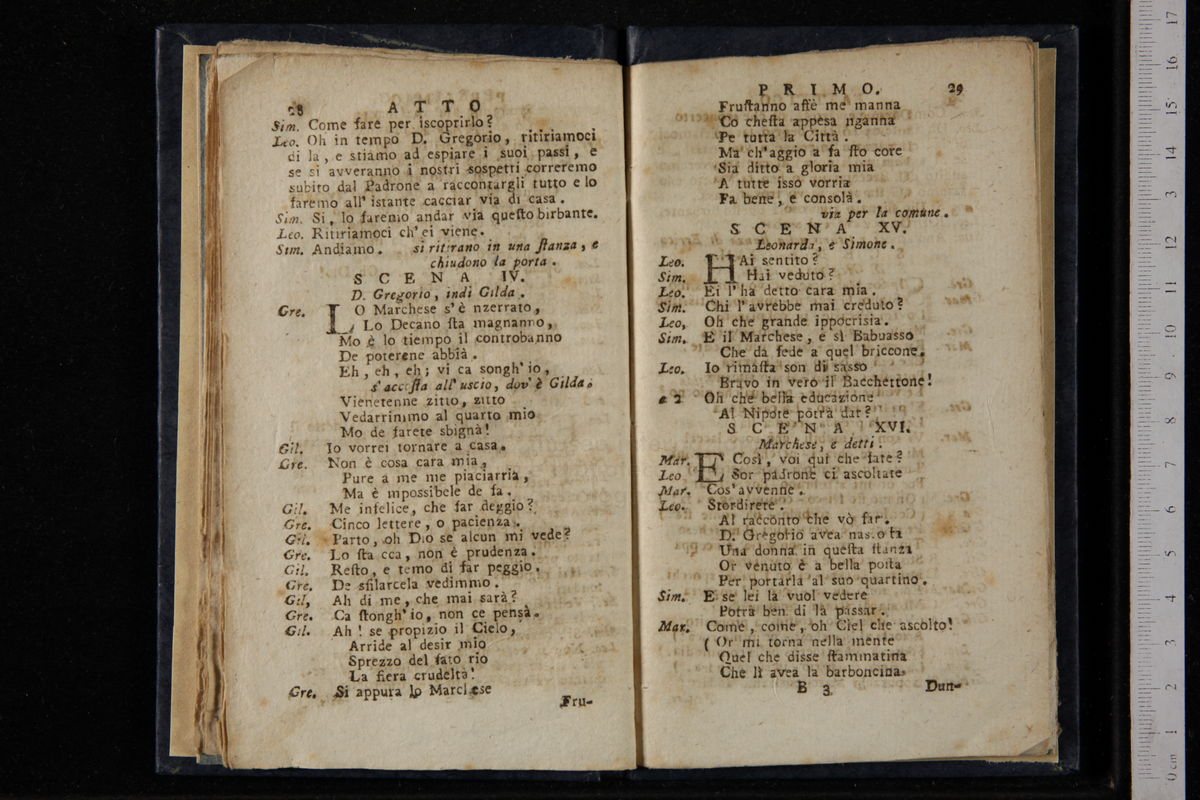 28 ATTO
Sim. Come fare per iscoprirlo?
Leo. Oh in tempo D. Gregorio, ritiriamoci
di la, e stiamo ad espiare i suoi passi, e
se si avveranno i nostri sospetti correremo
subito dal Padrone a raccontargli tutto e lo
faremo all' istante cacciar via di casa.
Sim. Si, lo faremo andar via queſto birbante.
Leo. Ritiriamoci ch' ei viene.
Sim. Andiamo. si ritirano in una ſtanza, e
chiudono la porta.
SCENA IV.
D. Gregorio, indi Gilda.
Gre. LO Marchese s' è nzerrato,
Lo Decano ſta magnanno,
Mo è lo tiempo il controbanno
De poterene abbià.
Eh, eh, eh; vi ca songh' io,
s' accoſta all' uscio, dov' è Gilda.
Vienetenne zitto, zitto
Vedarrimmo al quarto mio
Mo de farete sbignà!
Gil. Io vorrei tornare a casa.
Gre. Non è cosa cara mia,
Pure a me me piaciarria,
Ma è mpossibele de fa.
Gil. Me infelice, che far deggio?
Gre. Cinco lettere, o pacienza.
Gil. Parto, oh Dio se alcun mi vede?
Gre. Lo ſta cca, non è prudenza.
Gil. Reſto, e temo di far peggio.
Gre. De sfilarcela vedimmo.
Gil, Ah di me, che mai sarà?
Gre. Ca ſtongh' io, non ce pensà.
Gil. Ah! se propizio il Cielo,
Arride al desir mio
Sprezzo del fato rio
La fiera crudeltà!
Gre. Si appura lo Marchese
Fru-
PRIMO. 29
Fruſtanno affè me manna
Co cheſta appesa nganna
Pe tutta la Città.
Ma ch' aggio a fa ſto core
Sia ditto a gloria mia
A tutte isso vorria
Fa bene, e consolà.
via per la comune.
SCENA XV.
Leonarda, e Simone.
Leo. HAi sentito?
Sim. Hai veduto?
Leo. Ei l' ha detto cara mia.
Sim. Chi l' avrebbe mai creduto?
Leo, Oh che grande ippocrisia.
Sim. E il Marchese, e sì Babuasso
Che da fede a quel briccone.
Leo. Io rimaſta son di sasso
Bravo in vero il Bacchettone!
a 2 Oh che bella educazione
Al Nipote potrà dar?
SCENA XVI.
Marchese, e detti.
Mar. E Così, voi quì che fate?
Leo Sor padrone ci ascoltate
Mar. Cos' avvenne.
Leo. Stordirete.
Al racconto che vò far.
D. Gregorio avea nascoſta
Una donna in queſta ſtanza
Or venuto è a bella poſta
Per portarla al suo quartino.
Sim. E se lei la vuol vedere
Potrà ben di là passar.
Mar. Come, come, oh Ciel che ascolto!
( Or mi torna nella mente
Quel che disse ſtammatina
Che lì avea la barboncina.
B 3 Dun-